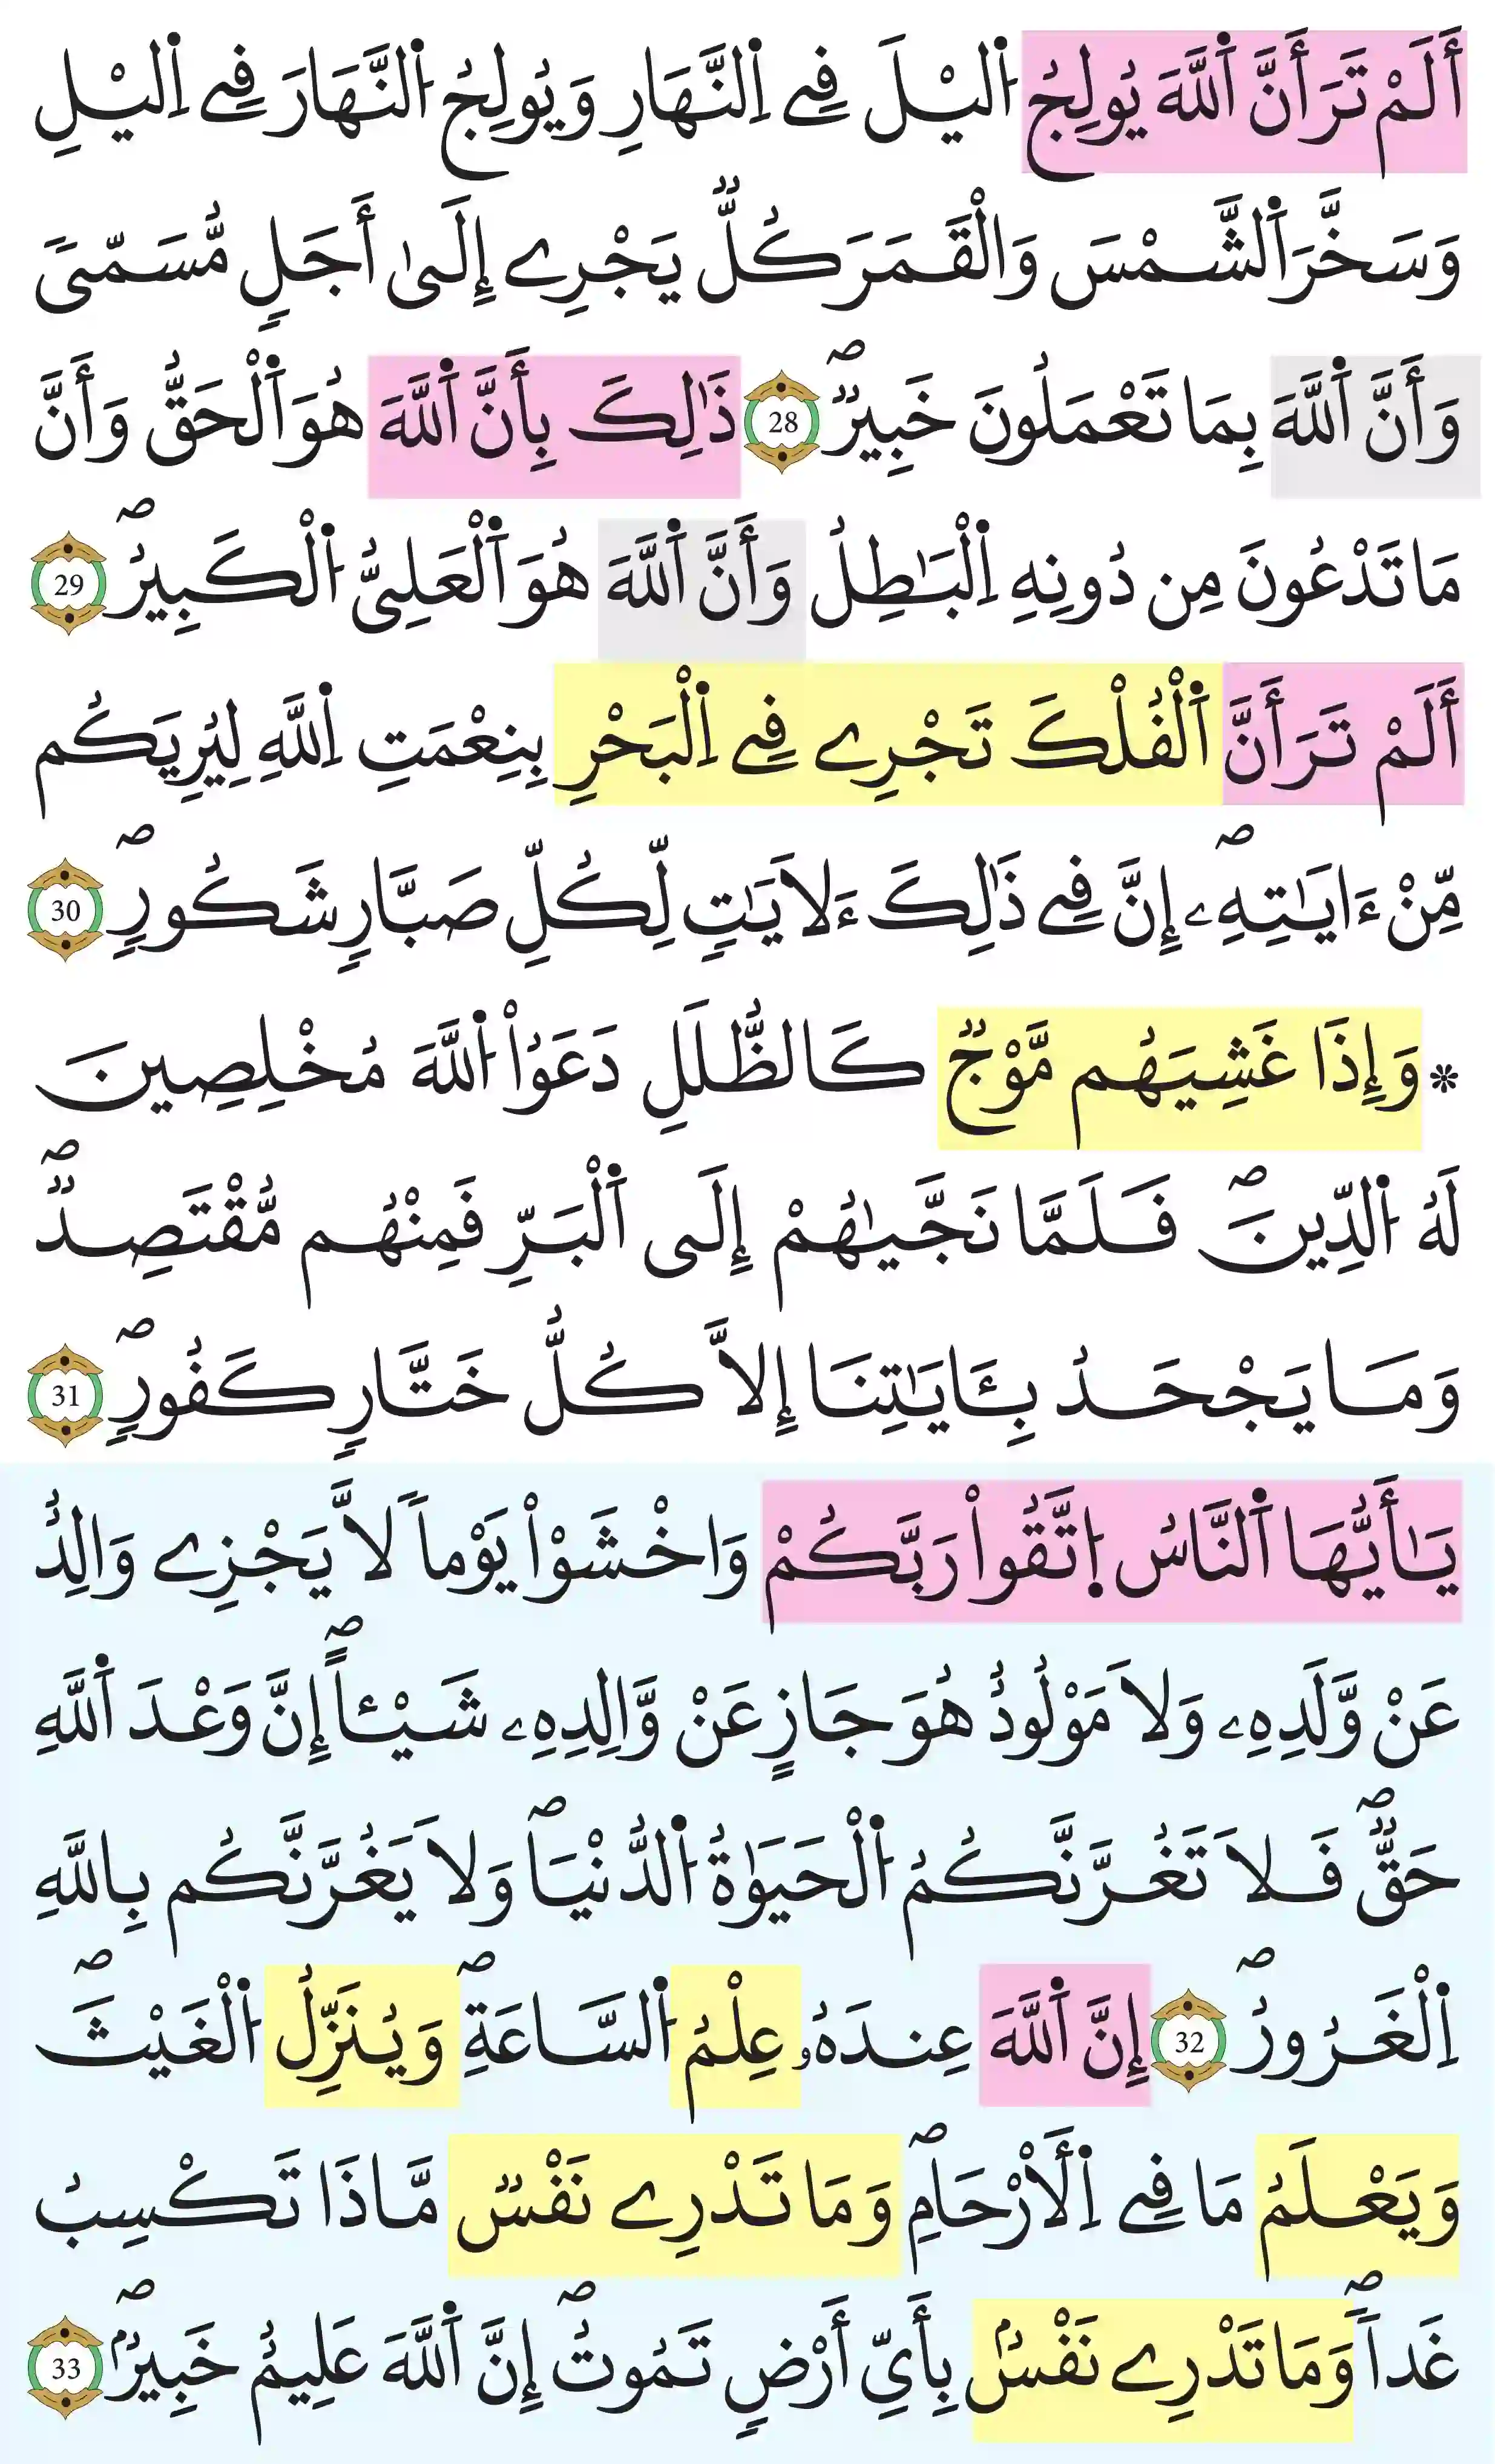 أَلَمْ تَرَ أَنَّ اَ۬للَّهَ يُولِجُ اُ۬ليْلَ فِے اِ۬لنَّه۪ارِ وَيُولِجُ اُ۬لنَّهَارَ فِے اِ۬ليْلِ
وَسَخَّرَ اَ۬لشَّمْسَ وَالْقَمَرَ كُلّٞ يَجْرِے إِلَىٰ أَجَلٖ مُّسَمّىٗ
وَأَنَّ اَ۬للَّهَ بِمَا تَعْمَلُونَ خَبِيرٞۖ 28 ذَٰلِكَ بِأَنَّ اَ۬للَّهَ هُوَ اَ۬لْحَقُّ وَأَنَّ
مَا تَدْعُونَ مِن دُونِهِ اِ۬لْبَٰطِلُ وَأَنَّ اَ۬للَّهَ هُوَ اَ۬لْعَلِيُّ اُ۬لْكَبِيرُۖ 29
أَلَمْ تَرَ أَنَّ اَ۬لْفُلْكَ تَجْرِے فِے اِ۬لْبَحْرِ بِنِعْمَتِ اِ۬للَّهِ لِيُرِيَكُم
مِّنْ ءَايَٰتِهِۦۖ إِنَّ فِے ذَٰلِكَ ءَلَايَٰتٖ لِّكُلِّ صَبَّارٖ شَكُورٖۖ 30
* وَإِذَا غَشِيَهُم مَّوْجٞ كَالظُّلَلِ دَعَوُاْ اُ۬للَّهَ مُخْلِصِينَ
لَهُ اُ۬لدِّينَۖ فَلَمَّا نَجَّيٰهُمْ إِلَى اَ۬لْبَرِّ فَمِنْهُم مُّقْتَصِدٞۖ
وَمَا يَجْحَدُ بِـَٔايَٰتِنَا إِلَّا كُلُّ خَتَّارٖ كَفُورٖۖ 31
يَٰأَيُّهَا اَ۬لنَّاسُ اُ۪تَّقُواْ رَبَّكُمْ وَاخْشَوْاْ يَوْماٗ لَّا يَجْزِے وَالِدٌ
عَنْ وَّلَدِهِۦ وَلَا مَوْلُودٌ هُوَ جَازٍ عَنْ وَّالِدِهِۦ شَيْـٔاًۖ إِنَّ وَعْدَ اَ۬للَّهِ
حَقّٞۖ فَلَا تَغُرَّنَّكُمُ اُ۬لْحَيَوٰةُ اُ۬لدُّنْيَاۖ وَلَا يَغُرَّنَّكُم بِاللَّهِ
اِ۬لْغَرُورُۖ 32 إِنَّ اَ۬للَّهَ عِندَهُۥ عِلْمُ اُ۬لسَّاعَةِۖ وَيُنَزِّلُ اُ۬لْغَيْثَۖ
وَيَعْلَمُ مَا فِے اِ۬لْأَرْحَامِۖ وَمَا تَدْرِے نَفْسٞ مَّاذَا تَكْسِبُ
غَداٗۖ وَمَا تَدْرِے نَفْسُۢ بِأَيِّ أَرْضٖ تَمُوتُۖ إِنَّ اَ۬للَّهَ عَلِيمٌ خَبِيرُۢۖ 33